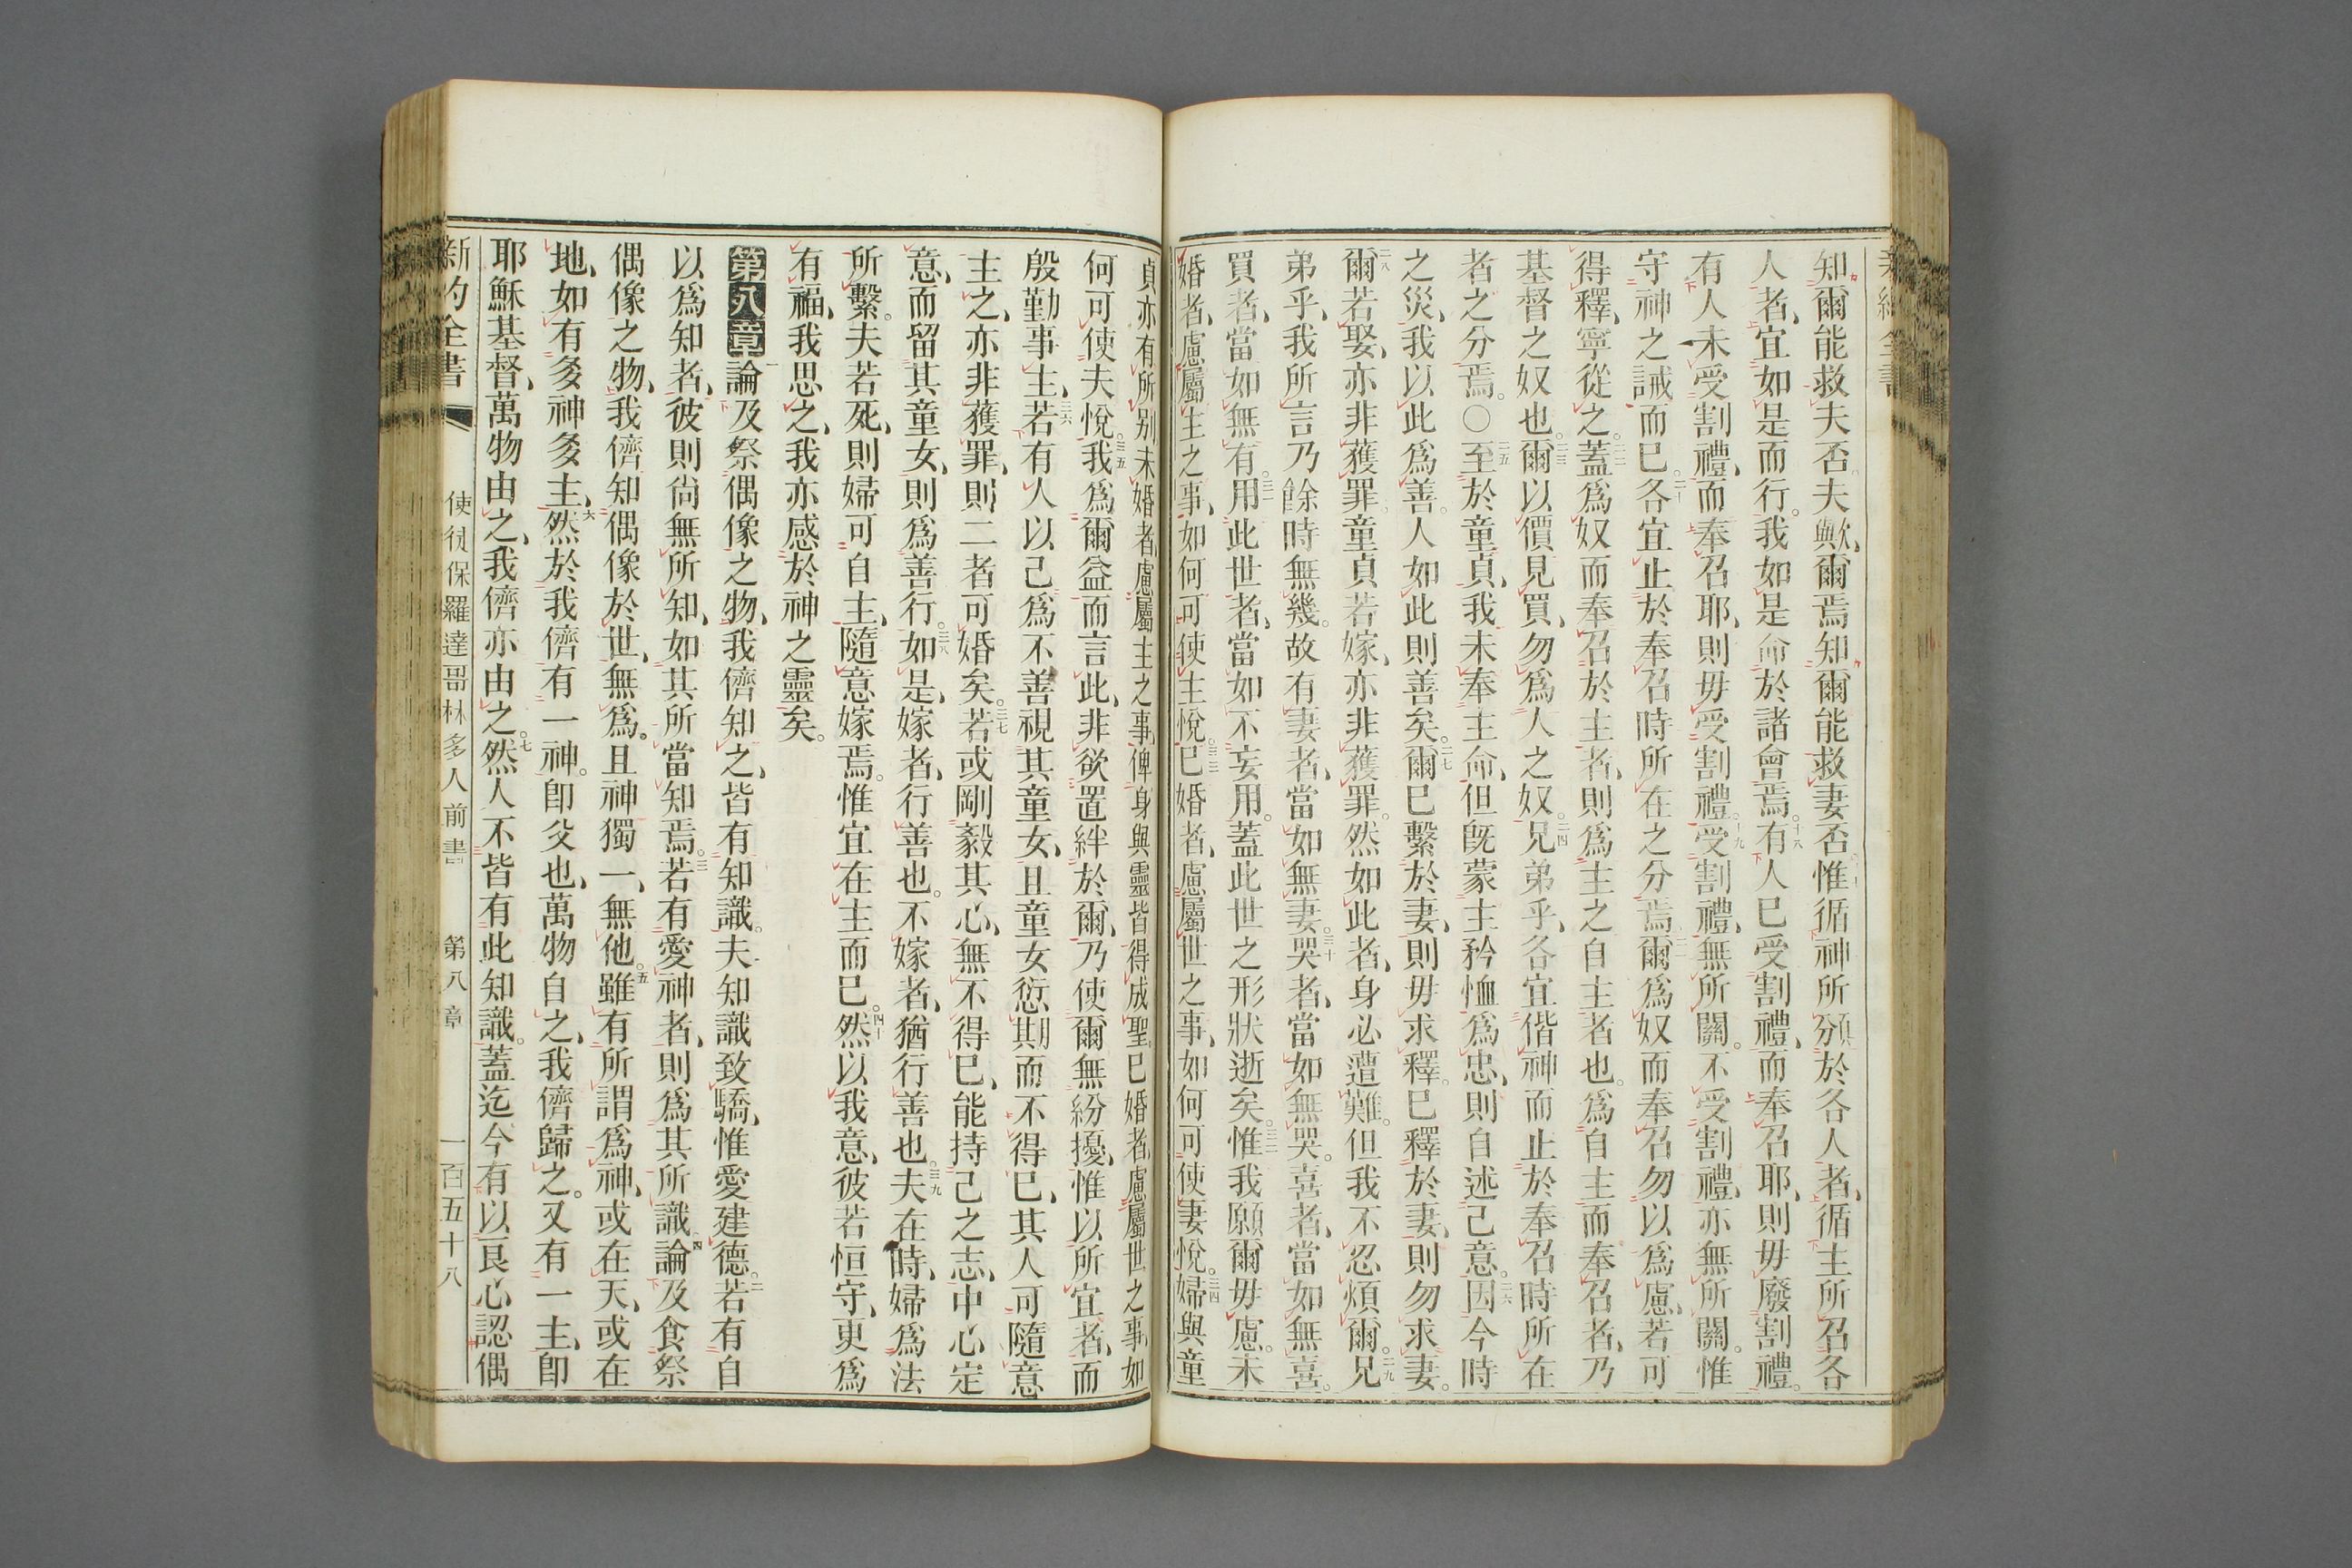 知爾能救夫否夫歟爾焉知爾能救妻否惟循神所頒於各人者循主所召各
人者宜如是而行我如是命於諸會焉十八有人已受割禮而奉召耶則毋廢割禮
有人未受割禮而奉召耶則毋受割禮十九受割禮無所關不受割禮亦無所關惟
守神之誡而已二十各宜止於奉召時所在之分焉二一爾爲奴而奉召勿以爲慮若可
得釋寧從之二二蓋爲奴而奉召於主者則爲主之自主者也爲自主而奉召者乃
基督之奴也二三爾以價見買勿爲人之奴二四兄弟乎各宜偕神而止於奉召時所在
者之分焉○二五至於童貞我未奉主命但既蒙主矜恤爲忠則自述己意二六因今時
之災我以此爲善人如此則善矣二七爾已繫於妻則毋求釋已釋於妻則勿求妻
二八爾若娶亦非獲罪童貞若嫁亦非獲罪然如此者身必遭難但我不忍煩爾二九兄
弟乎我所言乃餘時無幾故有妻者當如無妻三十哭者當如無哭喜者當如無喜
買者當如無有三一用此世者當如不妄用蓋此世之形狀逝矣三二惟我願爾毋慮未
婚者慮屬主之事如何可使主悅三三已婚者慮屬世之事如何可使妻悅三四婦與童
貞亦有所別未婚者慮屬主之事俾身與靈皆得成聖已婚者慮屬世之事如
何可使夫悅三五我爲爾益而言此非欲置絆於爾乃使爾無紛擾惟以所宜者而
殷勤事主三六若有人以己爲不善視其童女且童女愆期而不得已其人可隨意
主之亦非獲罪則二者可婚矣三七若或剛毅其心無不得已能持己之志中心定
意而留其童女則爲善行三八如是嫁者行善也不嫁者猶行善也三九夫在時婦爲法
所繫夫若死則婦可自主隨意嫁焉惟宜在主而已四十然以我意彼若恒守更爲
有福我思之我亦感於神之靈矣
第八章一論及祭偶像之物我儕知之皆有知識夫知識致驕惟愛建德二若有自
以爲知者彼則尚無所知如其所當知焉三若有愛神者則爲其所識四論及食祭
偶像之物我儕知偶像於世無爲且神獨一無他五雖有所謂爲神或在天或在
地如有多神多主六然於我儕有一神卽父也萬物自之我儕歸之又有一主卽
耶穌基督萬物由之我儕亦由之七然人不皆有此知識蓋迄今有以良心認偶
新約全書 使徒保羅達哥林多人前書 第八章 一百五十八